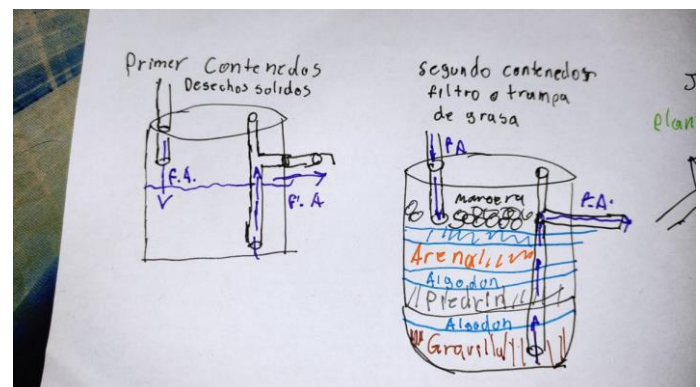 Primer Contenedos
Desechos solidos
F.A.
F. A
segundo contenedor
filtro o trampa
de grasa
F A
marcera
F.A.
Arena
Algodon
Piedrin
Algodon
Gravilla
J
plan